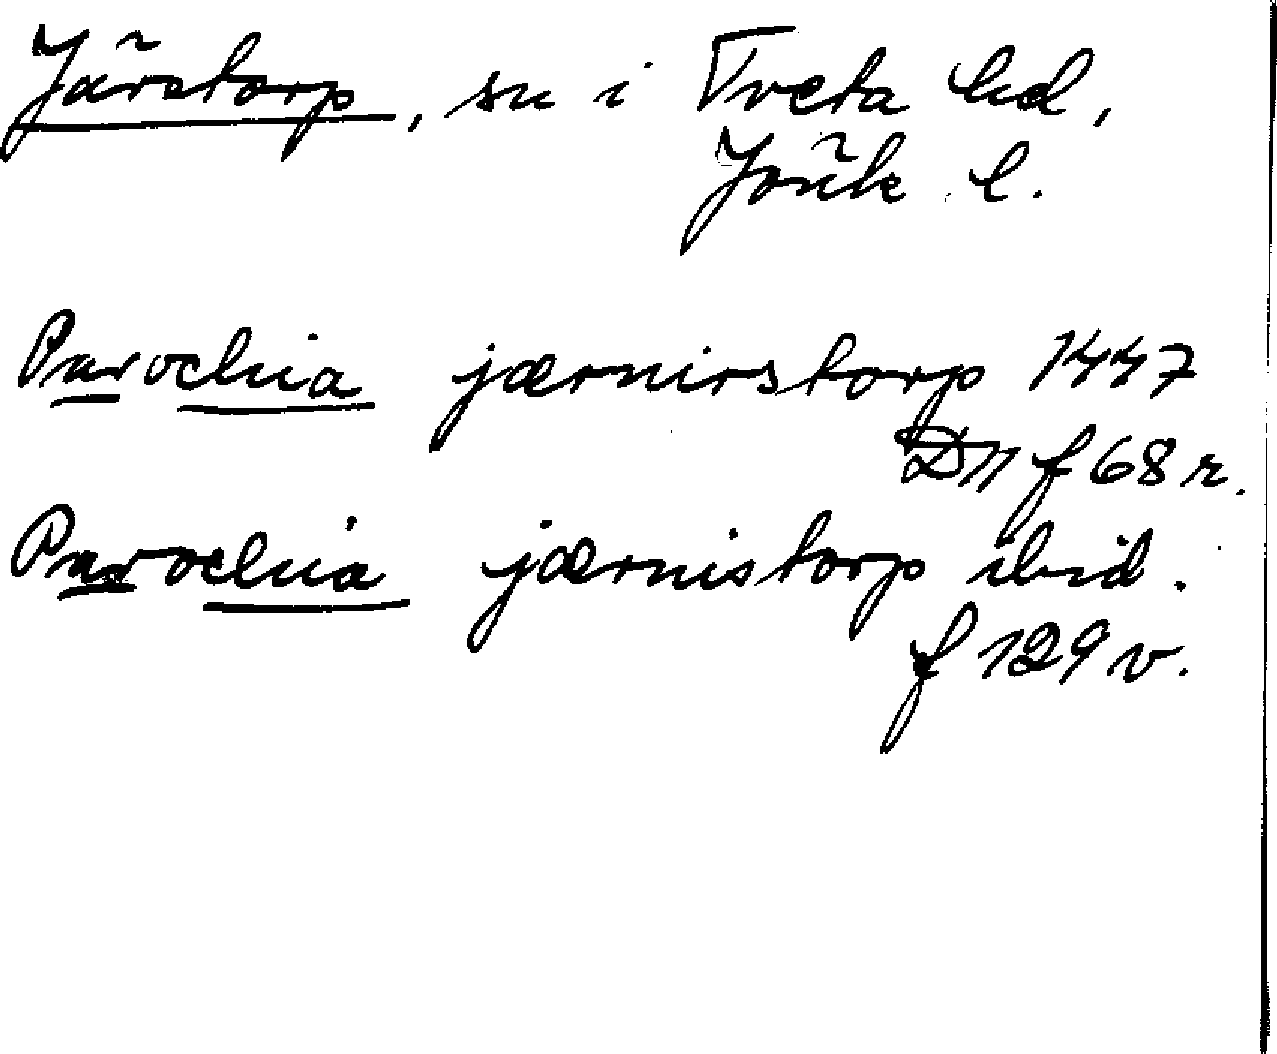 Järstorp, sn i Tveta hd,
Jönk. l.
Parochia jærnirstorp 1447
D11 f 68 r.
Parochia jærnistorp ibid.
f 129 v.